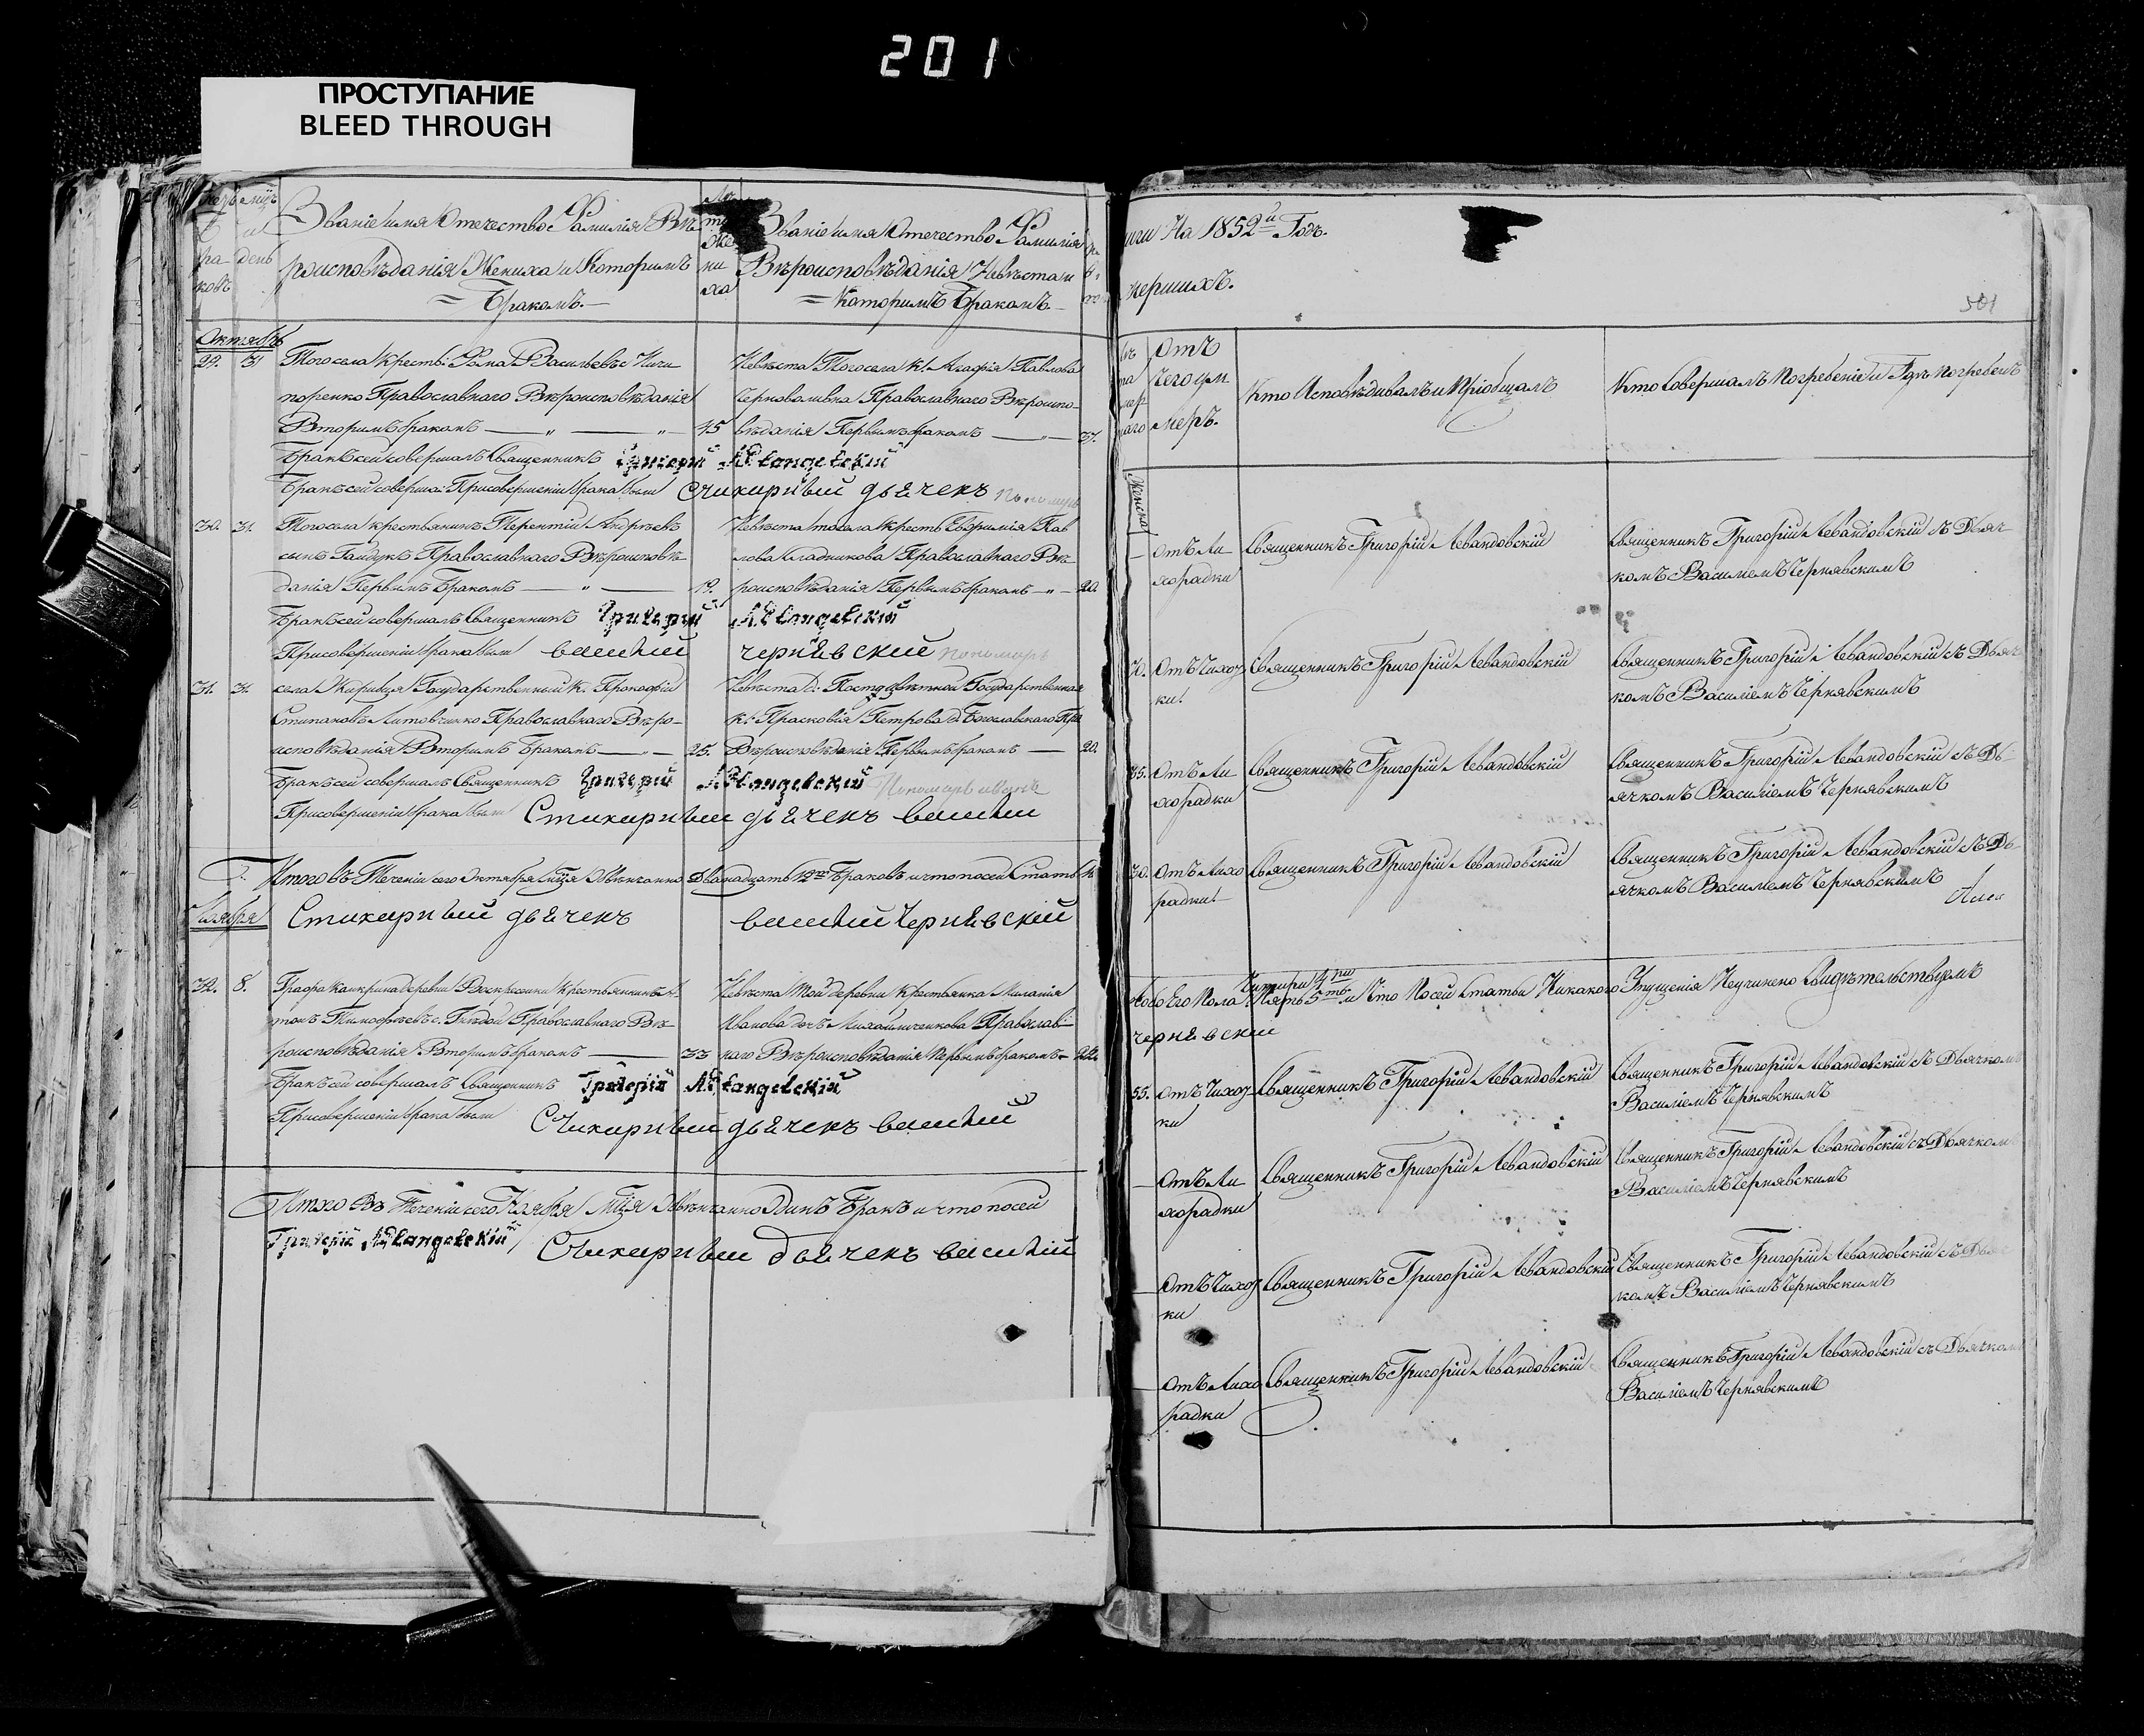 201
ПРОСТУПАНИЕ
BLEED THROUGH
Званіе имя Отечество Фамилія Вѣ-
роисповѣданія Жениха и Которимъ
Бракомъ.
ни
ха
Званіе имя Отечество Фамилія
Вѣроисповѣданія Невѣсти и
Которимъ Бракомъ
день
ра-
ковъ
Октябрь
29. 31
Тогосела крестъ: Фома Васильевъ Ничи
поренко Православнаго Вѣроисповѣданія
Вторимъ бракомъ — „ — „ — 45
Невѣста Тогосела К. Агафія Павлова
Православнаго Вѣроиспо-
вѣданія Первимъ бракомъ — „ — 37.
Бракъ сей совершалъ Священникъ Григорій Левандовскій
Бракъ сей соверша: Присовершеніи брака были Стихарный дьячекъ пономарь
30. 31.
Тогосела крестьянинъ Терентій Андреевъ
сынъ Гайдукъ Православнаго Вѣроисповѣ-
данія Первимъ Бракомъ — „ — 19.
Невѣста тогосела крестъ Евфимія Пав
лова Сладникова Православнаго Вѣ-
роисповѣданія Первимъ бракомъ — „ — 20.
Бракъ сей совершалъ Священникъ Григорій Левандовскій
Присовершеніи брака были василий чернявский пономарь
31. 31.
села Государственный К. Прокофій
Стипановъ Литовченко Православнаго Вѣро-
исповѣданія Вторимъ Бракомъ — „ — 25.
Невѣста Государственная
К: Прасковія Петрова д. Богославскаго Пра
Вѣроисповѣданія Первимъ бракомъ — 20.
Бракъ сей совершалъ Священникъ Григорій Левандовскій Пономарь
Присовершеніи брака были Стихарный дьячекъ василий
Итого въ Теченіи сего Октября Мѣсяца Обвѣнчанно Дванадцать 12 Браковъ и что посей Статьѣ
Ноября
Стихарный дьячекъ василий Чернявский
32. 8.
Графа Канкрина деревни Воскресенки Крестьянинъ Ан-
тонъ Тимофѣевъ с. Гнѣдой Православнаго Вѣ-
роисповѣданія Вторимъ бракомъ — 33
Невѣста Той деревни крестьянка Миланія
Иванова дочъ Михайличенкова Православ-
наго Вѣроисповѣданія Первимъ бракомъ — 22.
Бракъ сей совершалъ Священникъ Григорій Левандовскій
Присовершеніи брака были Стихарный дьячекъ василий
Итого Въ Теченіи сего Ноября Мѣсяца Обвѣнчанно Одинъ Бракъ и что посей
Григорій Левандовскій Стихарный дьячекъ василий
ниги На 1852й Годъ.
мершихъ.
501
Отъ
Чего ум
меръ.
Кто Исповѣдивалъ и Пріобщалъ
Кто Совершалъ Погребеніе и Гдѣ погребенъ
Женска
Отъ Ли
хорадки
Священникъ Григорій Левандовскій
Священникъ Григорій Левандовскій съ Дьяч-
комъ Василіемъ Чернявскимъ
70. Отъ Чихот
ки.
Священникъ Григорій Левандовскій
Священникъ Григорій Левандовскій съ Дьяч
комъ Василіемъ Чернявскимъ
35. Отъ Ли
хорадки
Священникъ Григорій Левандовскій
Священникъ Григорій Левандовскій съ Дь-
ячкомъ Василіемъ Чернявскимъ
30. Отъ Лихо
радки
Священникъ Григорій Левандовскій
Священникъ Григорій Левандовскій съ Дь-
ячкомъ Василіемъ Чернявскимъ
Чотири 4ри
Обоего Пола Пять 5ть и Что Посей Статьи Никакого Упущенія Неучинено Свидѣтельствуемъ
чернявский
55. Отъ Чихот
ки
Священникъ Григорій Левандовскій
Священникъ Григорій Левандовскій съ Дьячкомъ
Василіемъ Чернявскимъ
Отъ Ли
хорадки
Священникъ Григорій Левандовскій
Священникъ Григорій Левандовскій съ Дьячкомъ
Василіемъ Чернявскимъ
Отъ Чихот
ки
Священникъ Григорій Левандовскій
Священникъ Григорій Левандовскій съ Дьяч
комъ Василіемъ Чернявскимъ
Отъ Лихо
радки
Священникъ Григорій Левандовскій
Священникъ Григорій Левандовскій съ Дьячкомъ
Василіемъ Чернявскимъ